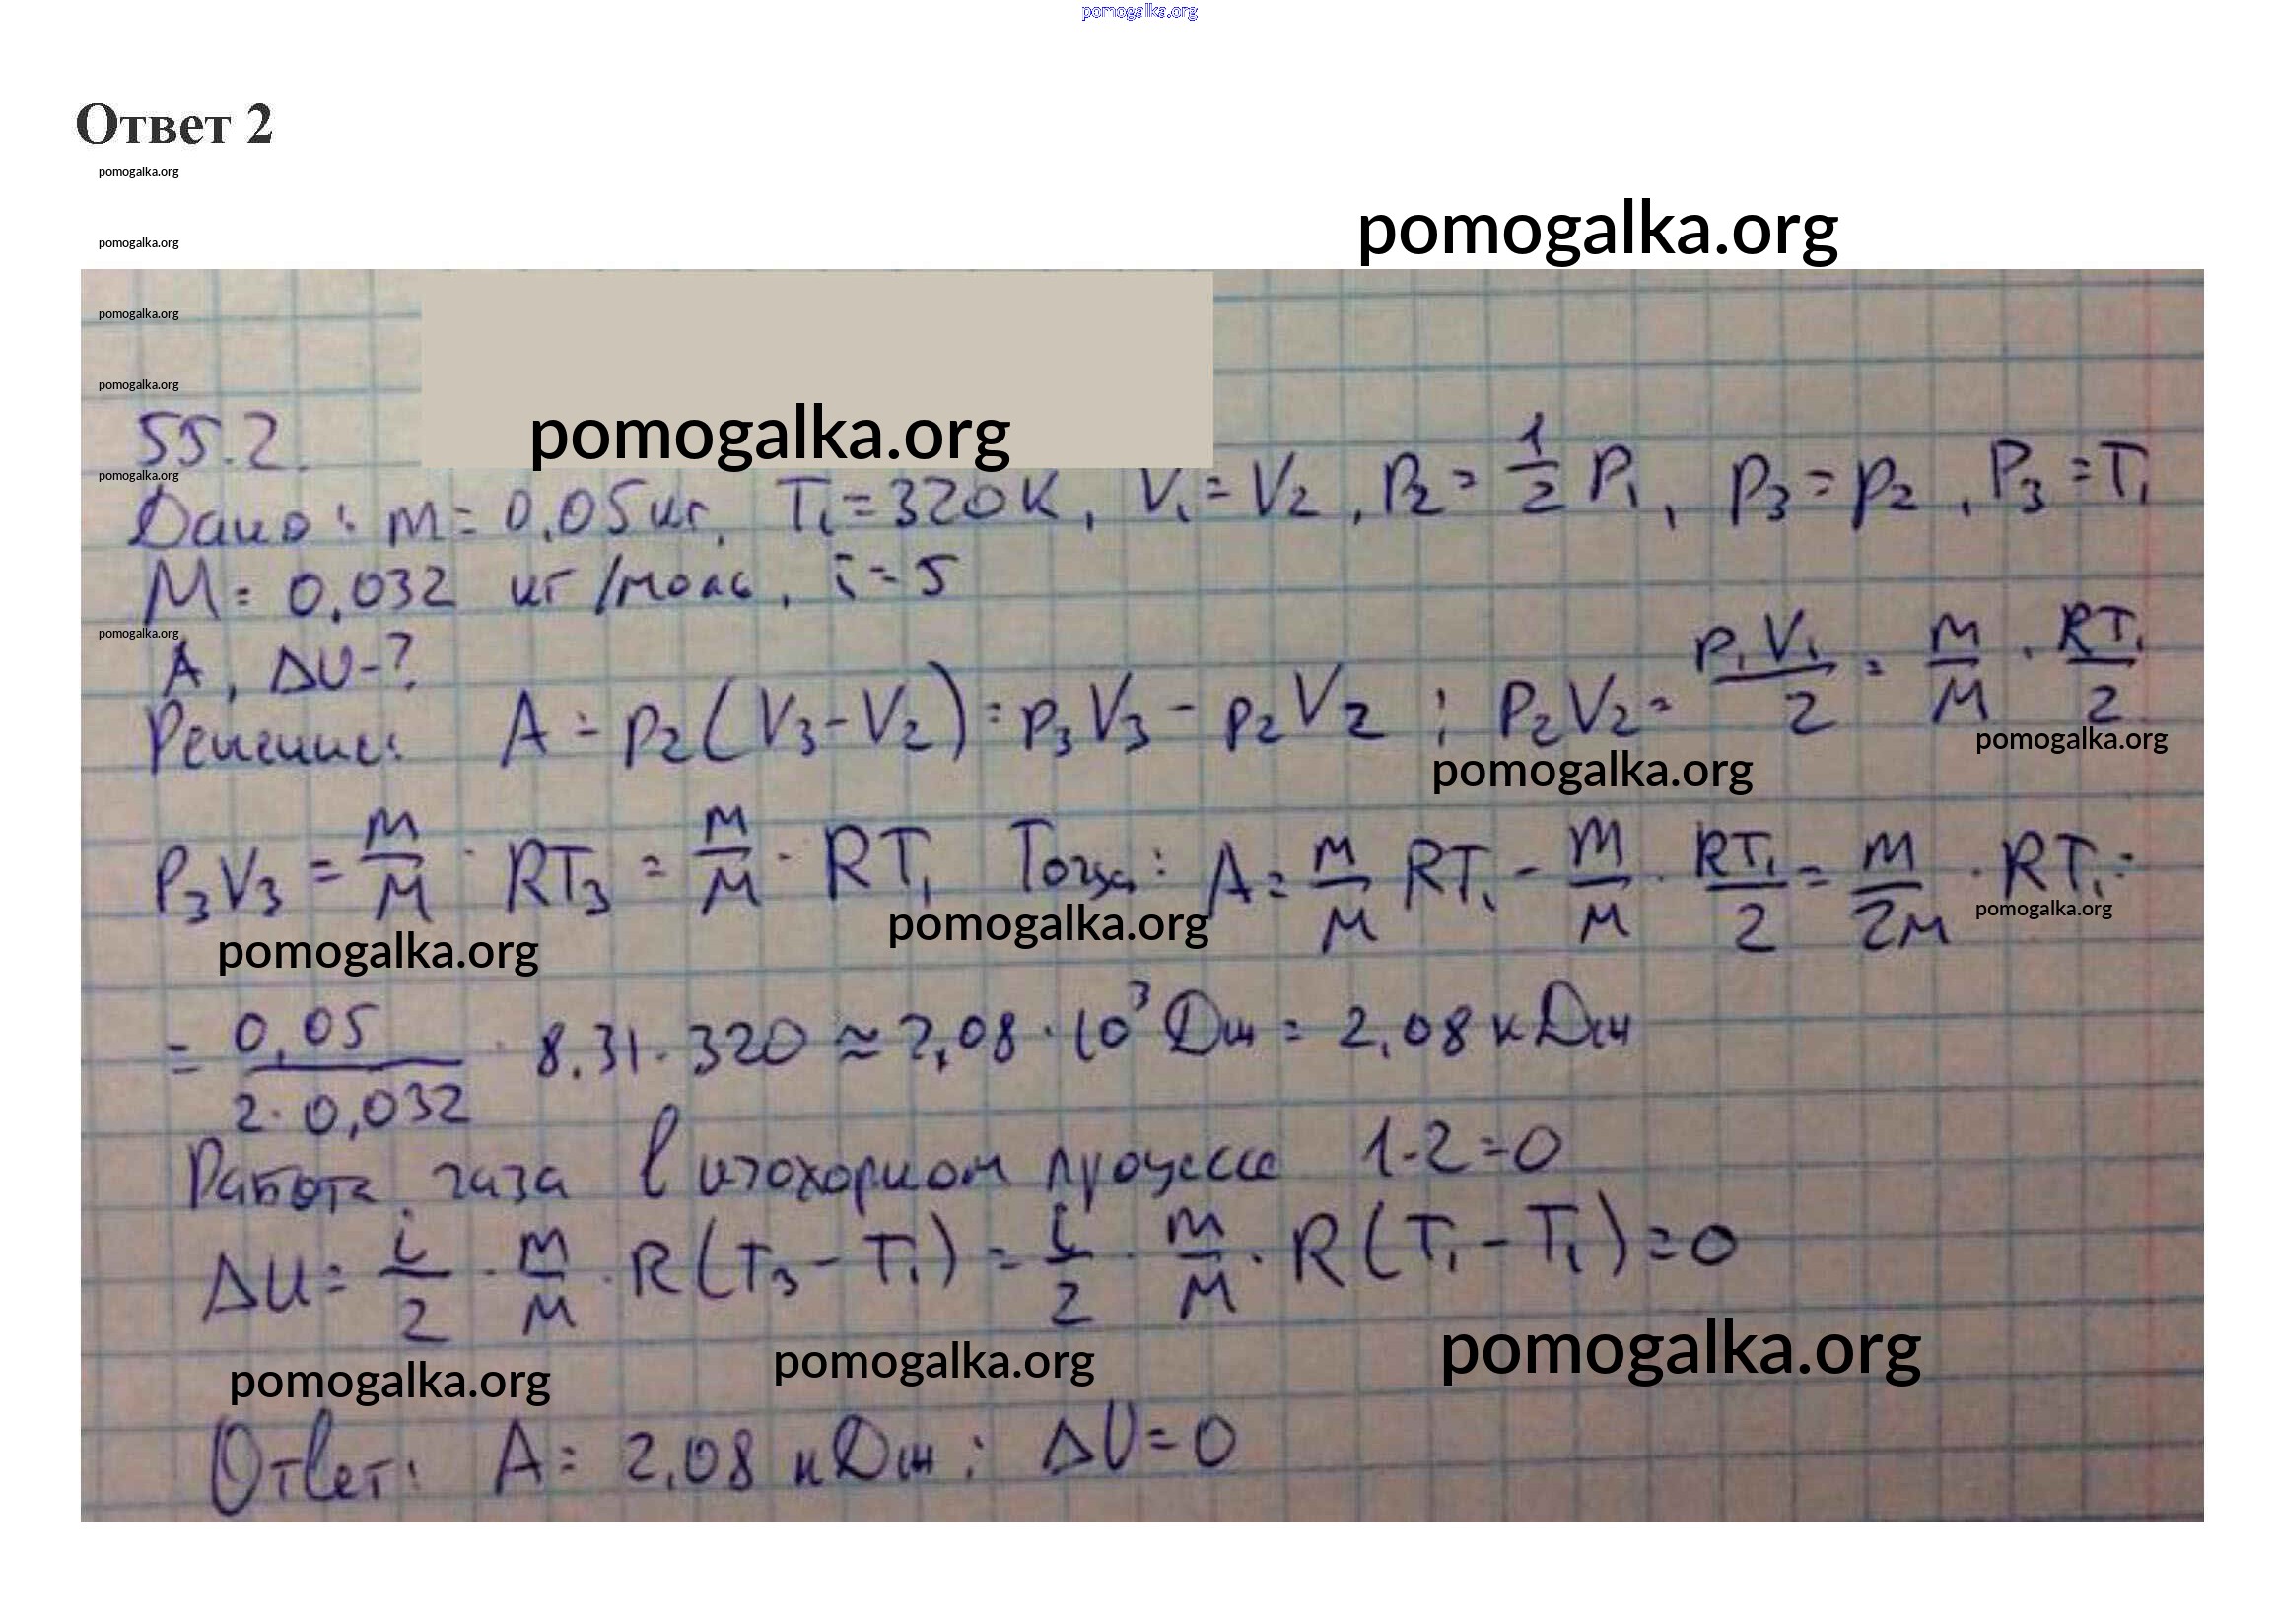 pomogalka.org
Ответ 2
pomogalka.org
pomogalka.org
pomogalka.org
pomogalka.org
pomogalka.org
pomogalka.org
55.2.
pomogalka.org
Дано: m = 0,05 кг, T₁ = 320 К, V₁ = V₂, p₂ = 1/2 p₁, p₃ = p₂, P₃ = T₁
M = 0,032 кг/моль, i = 5
pomogalka.org
A, ΔU - ?
Решение: A = p₂(V₃ - V₂) = p₃V₃ - p₂V₂; p₂V₂ = p₁V₁/2 = m/M · RT₁/2
pomogalka.org
pomogalka.org
P₃V₃ = m/M · RT₃ = m/M · RT₁ Тогда: A = m/M RT₁ - m/M · RT₁/2 = m/2M · RT₁ =
pomogalka.org
pomogalka.org
pomogalka.org
= 0,05/2·0,032 · 8.31·320 ≈ 2,08·10³ Дж = 2,08 кДж
Работа газа в изохорном процессе 1-2=0
ΔU = i/2 · m/M · R(T₃ - T₁) = i/2 · m/M · R(T₁ - T₁) = 0
pomogalka.org
pomogalka.org
pomogalka.org
Ответ: A = 2,08 кДж; ΔU = 0